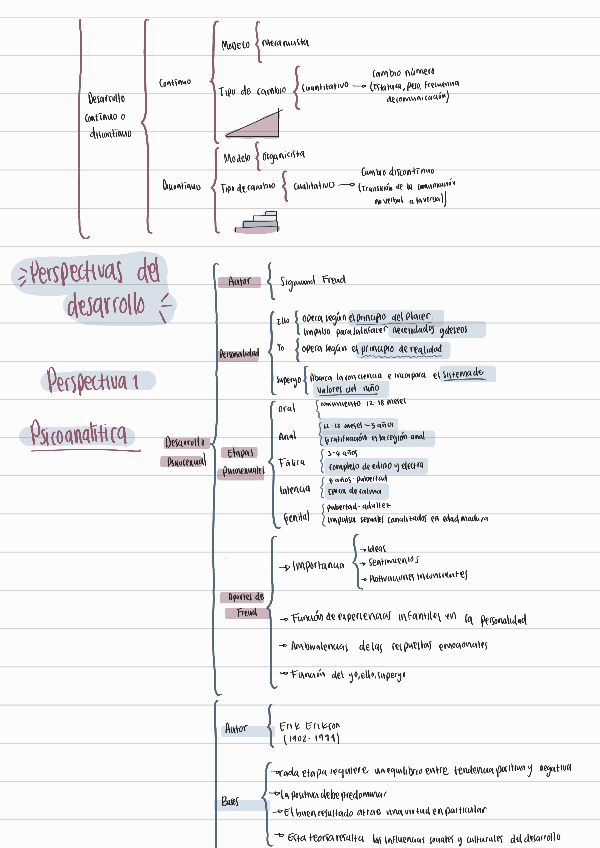 Desarrollo
continuo o
discontinuo
Continuo
Modelo
Tipo de cambio
Cuantitativo
Cambio número
(Estatura, peso, frecuencia
de comunicación)
Discontinuo
Modelo
Organicista
Tipo de cambio
Cualitativo
Cambio discontinuo
(Transición de la comunicación
no verbal a la verbal)
Perspectivas del
desarrollo
Perspectiva 1
Psicoanalítica
Desarrollo
Psicosexual
Autor
Sigmund Freud
Personalidad
Ello
opera según el principio del placer.
Impulso para satisfacer necesidades y deseos
Yo
opera según el principio de realidad
Superyo
Abarca la conciencia e incorpora el sistema de
valores del niño
Etapas
Psicosexuales
Oral
nacimiento 12-18 meses
Anal
12-18 meses - 3 años
Gratificación es la región anal
Fálica
3-6 años
complejo de edipo y electra
latencia
6 años - pubertad
Epoca de calma
Genital
pubertad - adultez
Impulsos sexuales canalizados en edad madura
Aportes de
Freud
→ Importancia
→ Ideas
→ Sentimientos
→ Motivaciones inconscientes
→ Función de experiencias infantiles en la personalidad
→ Ambivalencias de las respuestas emocionales
→ Función del yo, ello, superyo
Autor
Erik Erikson
(1902-1994)
Bases
→ cada etapa requiere un equilibrio entre tendencia positiva y negativa
→ la positiva debe predominar
→ El buen resultado atrae una virtud en particular
→ Esta teoría resalta las influencias sociales y culturales del desarrollo